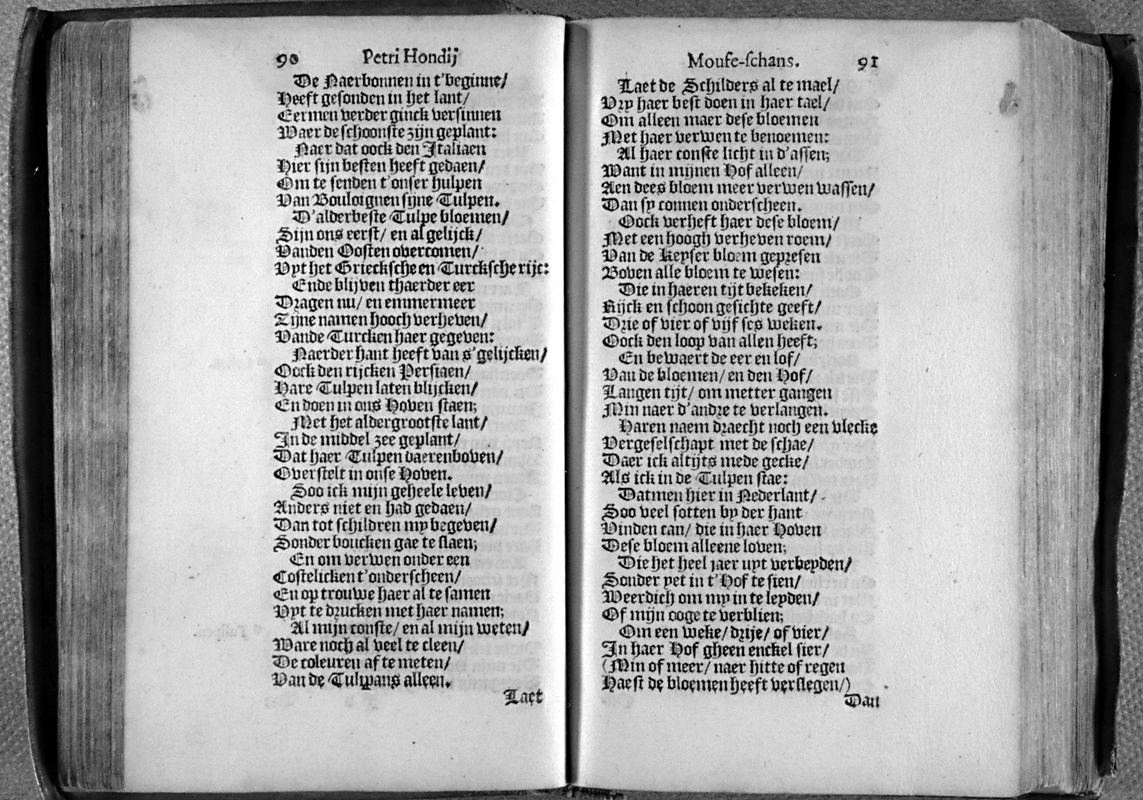 90 Petri Hondij
De Naerbonnen in t'beginne/
Heeft gesonden in het lant/
Eermen verder ginck versinnen
Waer de schoonste zijn geplant:
Naer dat oock den Italiaen
Hier sijn besten heeft gedaen/
Om te senden t'onser hulpen
Van Bouloignen sijne Tulpen.
D'alderbeste Tulpe bloemen/
Sijn ons eerst/ en al gelijck/
Vanden Oosten overcomen/
Vyt het Grieksche en Turcksche rijc:
Ende blijven thaerder eer
Dragen nu/ en emmermeer
Zijne namen hooch verheven/
Vande Turcken haer gegeven:
Naerder hant heeft van s'gelijcken/
Oock den rijcken Persiaen/
Hare Tulpen laten blijcken/
En doen in ons Hoven staen;
Met het aldergrootste lant/
In de middel zee geplant/
Dat haer Tulpen daerenboven/
Overstelt in onse Hoven.
Soo ick mijn geheele leven/
Anders niet en had gedaen/
Dan tot schildren my begeven/
Sonder boucken gae te slaen;
En om verwen onder een
Costelicken t'onderscheen/
En op trouwe haer al te samen
Vyt te drucken met haer namen;
Al mijn conste/ en al mijn weten/
Ware noch al veel te cleen/
De coleuren af te meten/
Van de Tulipans alleen.
Laet
Mouse-schans. 91
Laet de Schilders al te mael/
Vry haer best doen in haer tael/
Om alleen maer dese bloemen
Met haer verwen te benoemen:
Al haer conste licht in d'assen;
Want in mijnen Hof alleen/
Aen dees bloem meer verwen wassen/
Dan sy connen onderscheen.
Oock verheft haer dese bloem/
Met een hoogh verheven roem/
Van de Keyser bloem gepresen
Boven alle bloem te wesen:
Die in haeren tijt bekeken/
Rijck en schoon gesichte geeft/
Drie of vier of vijf ses weken.
Oock den loop van allen heeft;
En bewaert de eer en lof/
Van de bloemen/ en den Hof/
Langen tijt/ om metter gangen
Min naer d'andre te verlangen.
Haren naem draecht noch een vlecke
Vergeselschapt met de schae/
Daer ick altijts mede gecke/
Als ick in de Tulpen stae:
Datmen hier in Nederlant/
Soo veel sotten by der hant
Vinden can/ die in haer Hoven
Dese bloem alleene loven;
Die het heel jaer uyt verbeyden/
Sonder yet in t'Hof te sien/
Weerdich om my in te leyden/
Of mijn ooge te verblien;
Om een weke/ drije/ of vier/
In haer Hof gheen enckel sier/
(Min of meer/ naer hitte of regen
Haest de bloemen heeft verslegen/)
Dan